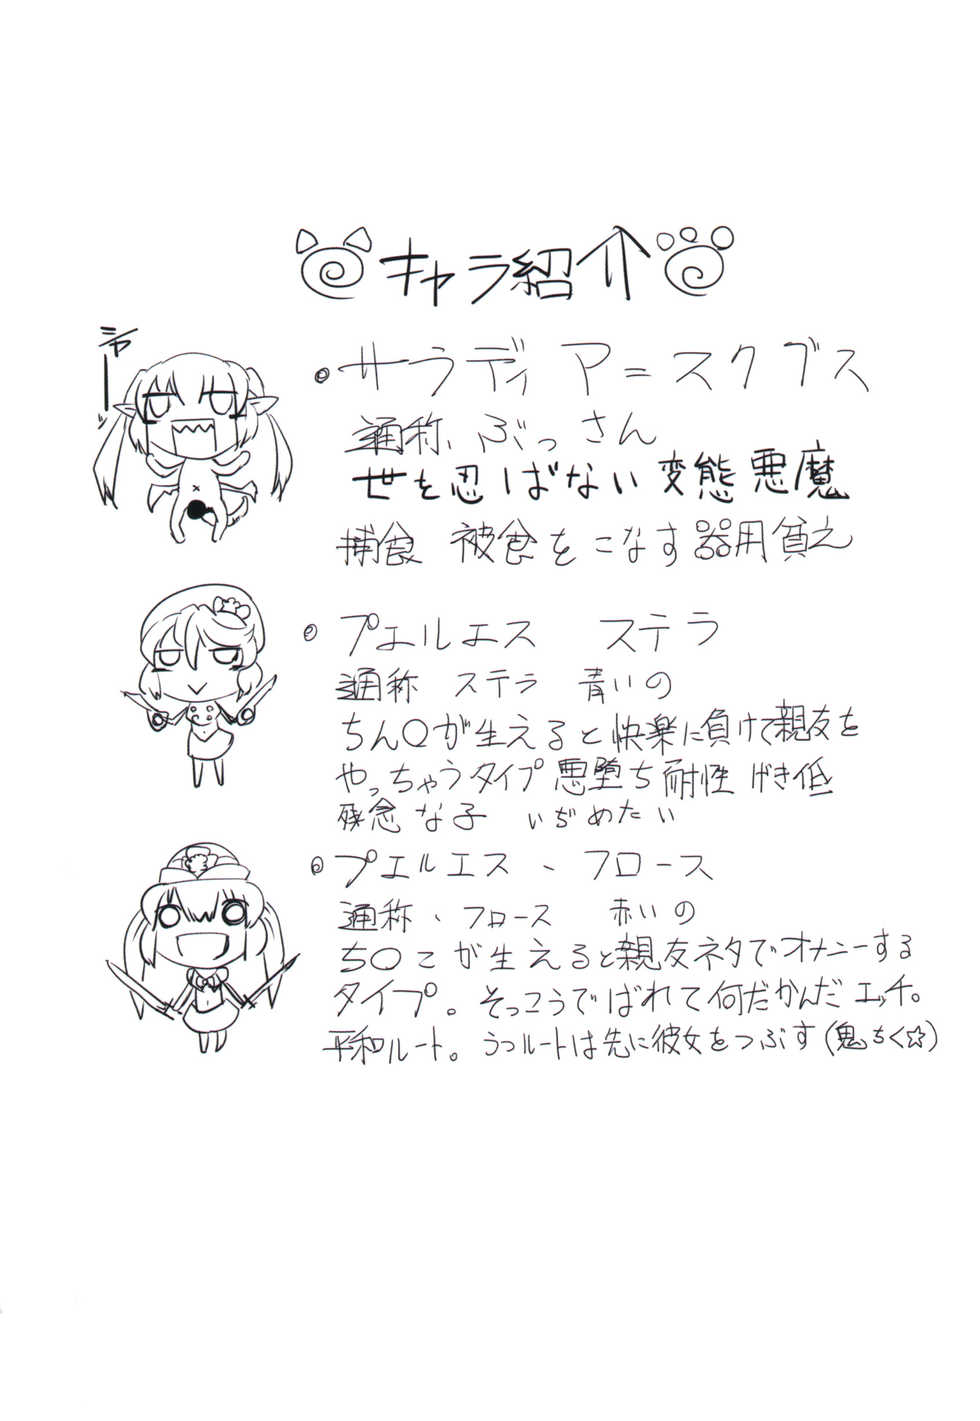 キャラ紹介
シャーッ
・サラディア=スクブス
通称、ぶっさん
世を忍ばない変態悪魔
捕食 被食をこなす器用貧乏
・プエルエス ステラ
通称 ステラ 青いの
ちん○が生えると快楽に負けて親友を
やっちゃうタイプ 悪堕ち耐性 げき低
残念な子 いぢめたい
・プエルエス、フロース
通称、フロース 赤いの
ち○こが生えると親友ネタでオナニーする
タイプ。そっこうでばれて何だかんだエッチ。
平和ルート。うつルートは先に彼女をつぶす(鬼ちく☆)